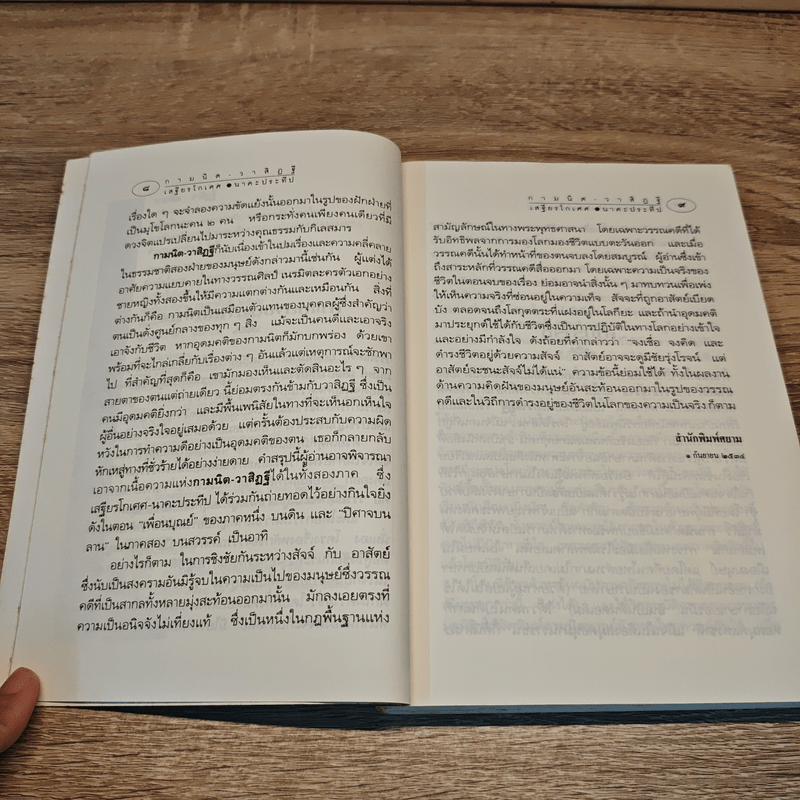 ๘
กามนิต-วาสิฏฐี
เสฐียรโกเศศ ● นาคะประทีป
เรื่องใด ๆ จะจำลองความขัดแย้งนั้นออกมาในรูปของฝักฝ่ายที่
เป็นมุโขโลกนะคน ๒ คน หรือกระทั่งคนเพียงคนเดียวที่มี
ดวงจิตแปรเปลี่ยนไปมาระหว่างคุณธรรมกับกิเลสมาร
กามนิต-วาสิฏฐีก็นับเนื่องเข้าในปมเรื่องและความคลี่คลาย
ในธรรมชาติสองฝ่ายของมนุษย์ดังกล่าวมานี้เช่นกัน ผู้แต่งได้
อาศัยความแยบคายในทางวรรณศิลป์ เนรมิตละครตัวเอกอย่าง
ชายหญิงทั้งสองขึ้นให้มีความแตกต่างกันและเหมือนกัน สิ่งที่
ต่างกันก็คือ กามนิตเป็นเสมือนตัวแทนของบุคคลผู้ซึ่งสำคัญว่า
ตนเป็นดั่งศูนย์กลางของทุก ๆ สิ่ง แม้จะเป็นคนดีและเอาจริง
เอาจังกับชีวิต หากอุดมคติของกามนิตก็มักบกพร่อง ด้วยเขา
พร้อมที่จะไกล่เกลี่ยกับเรื่องต่าง ๆ อันแล้วแต่เหตุการณ์จะชักพา
ไป ที่สำคัญที่สุดก็คือ เขามักมองเห็นและตัดสินอะไร ๆ จาก
สายตาของตนแต่ถ่ายเดียว นี้ย่อมตรงกันข้ามกับวาสิฏฐี ซึ่งเป็น
คนมีอุดมคติยิ่งกว่า และมีพื้นเพนิสัยในทางที่จะเห็นอกเห็นใจ
ผู้อื่นอย่างจริงใจอยู่เสมอด้วย แต่ครั้นต้องประสบกับความผิด
หวังในการทำความดีอย่างเป็นอุดมคติของตน เธอก็กลายกลับ
หักเหสู่ทางที่ชั่วร้ายได้อย่างง่ายดาย คำสรุปนี้ผู้อ่านอาจพิจารณา
เอาจากเนื้อความแห่งกามนิต-วาสิฏฐีได้ในทั้งสองภาค ซึ่ง
เสฐียรโกเศศ-นาคะประทีป ได้ร่วมกันถ่ายทอดไว้อย่างกินใจยิ่ง
ดังในตอน “เพื่อนบุณย์” ของภาคหนึ่ง บนดิน และ “ปิศาจบน
ลาน” ในภาคสอง บนสวรรค์ เป็นอาทิ
อย่างไรก็ตาม ในการชิงชัยกันระหว่างสัจจ์ กับ อาสัตย์
ซึ่งนับเป็นสงครามอันมิรู้จบในความเป็นไปของมนุษย์ซึ่งวรรณ
คดีที่เป็นสากลทั้งหลายมุ่งสะท้อนออกมานั้น มักลงเอยตรงที่
ความเป็นอนิจจังไม่เที่ยงแท้ ซึ่งเป็นหนึ่งในกฎพื้นฐานแห่ง
กามนิต-วาสิฏฐี
เสฐียรโกเศศ ● นาคะประทีป
๙
สามัญลักษณ์ในทางพระพุทธศาสนา โดยเฉพาะวรรณคดีที่ได้
รับอิทธิพลจากการมองโลกมองชีวิตแบบตะวันออก และเมื่อ
วรรณคดีนั้นได้ทำหน้าที่ของตนจบลงโดยสมบูรณ์ ผู้อ่านซึ่งเข้า
ถึงสาระหลักที่วรรณคดีสื่อออกมา โดยเฉพาะความเป็นจริงของ
ชีวิตในตอนจบของเรื่อง ย่อมอาจนำสิ่งนั้น ๆ มาทบทวนเพื่อเพ่ง
ให้เห็นความจริงที่ซ่อนอยู่ในความเท็จ สัจจะที่ถูกอาสัตย์เบียด
บัง ตลอดจนถึงโลกุตตระที่แฝงอยู่ในโลกียะ และถ้านำอุดมคติ
มาประยุกต์ใช้ได้กับชีวิตซึ่งเป็นการปฏิบัติในทางโลกอย่างเข้าใจ
และอย่างมีกำลังใจ ดังถ้อยที่คำกล่าวว่า “จงเชื่อ จงคิด และ
ดำรงชีวิตอยู่ด้วยความสัจจ์ อาสัตย์อาจจะดูมีชัยรุ่งโรจน์ แต่
อาสัตย์จะชนะสัจจ์ไม่ได้แน่” ความข้อนี้ย่อมใช้ได้ ทั้งในผลงาน
ด้านความคิดฝันของมนุษย์อันสะท้อนออกมาในรูปของวรรณ
คดีและในวิถีการดำรงอยู่ของชีวิตในโลกของความเป็นจริง ก็ตาม
สำนักพิมพ์ศยาม
๑ กันยายน ๒๕๓๔